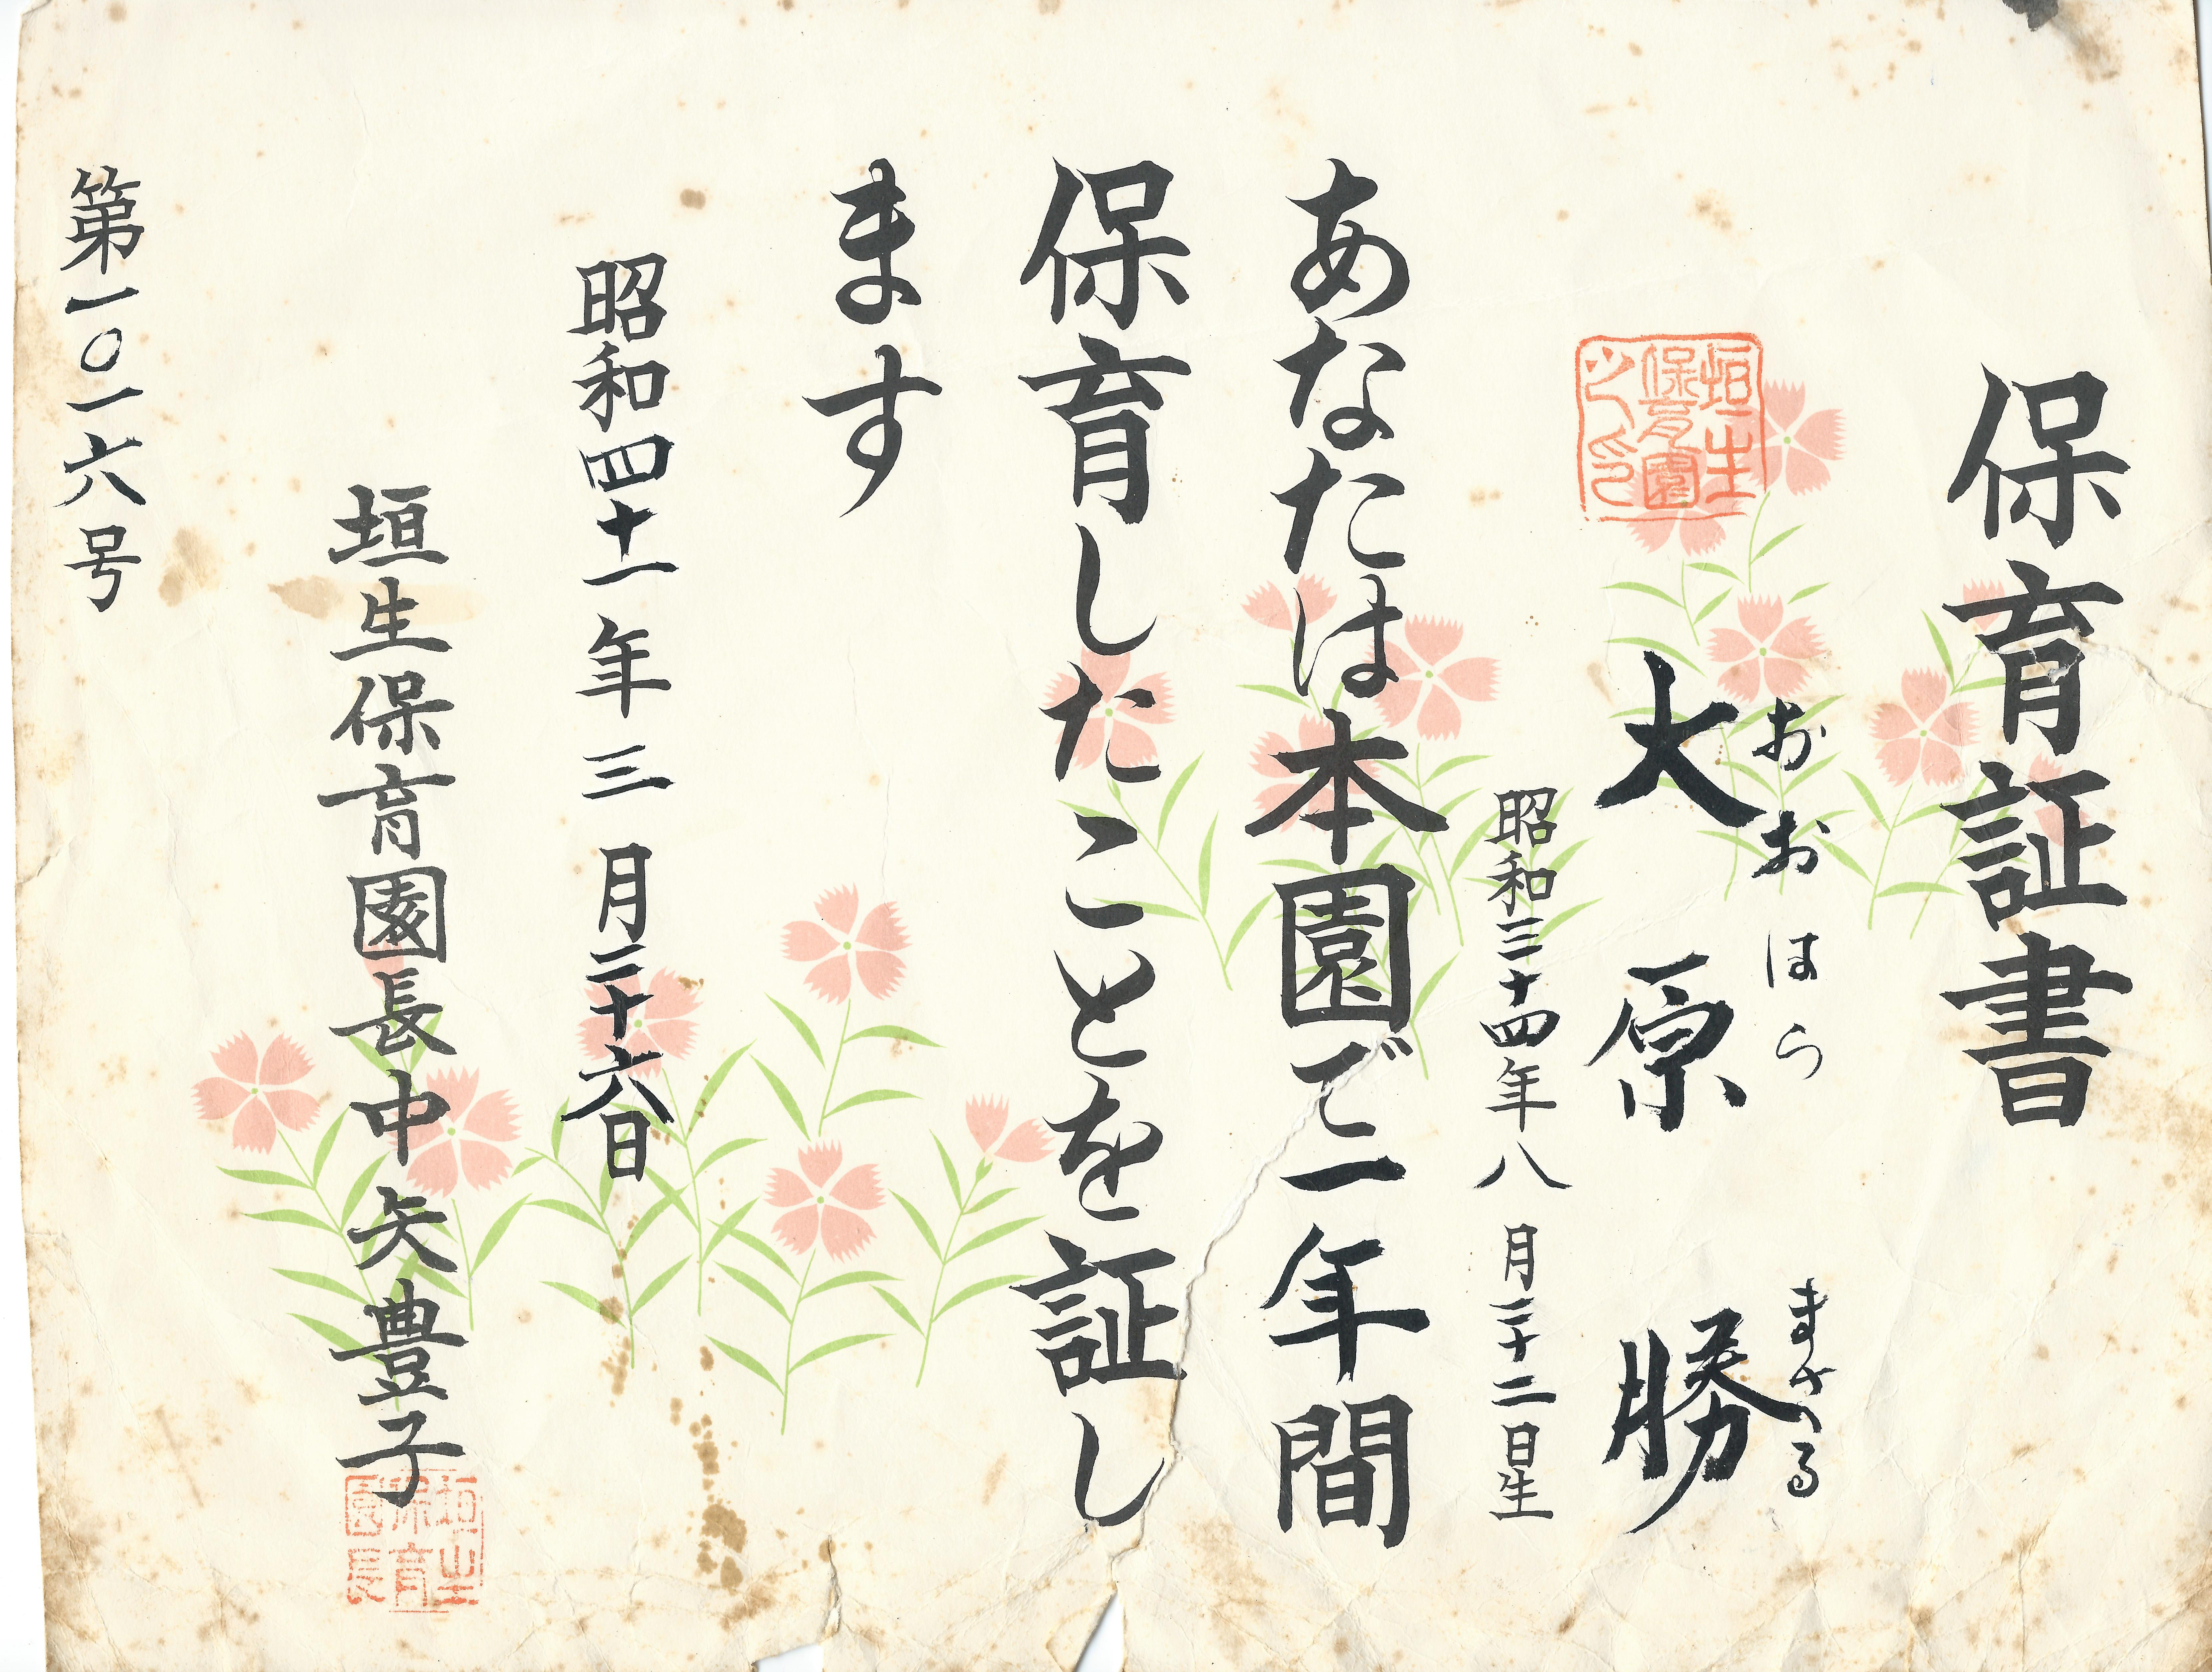 保育証書
垣生
保育園
之印
おおはら まさる
大原 勝
昭和三十四年八月二十二日生
あなたは本園で一年間
保育したことを証し
ます
昭和四十一年三月二十六日
垣生保育園長中矢豊子
垣生
保育
園長
第一〇一六号